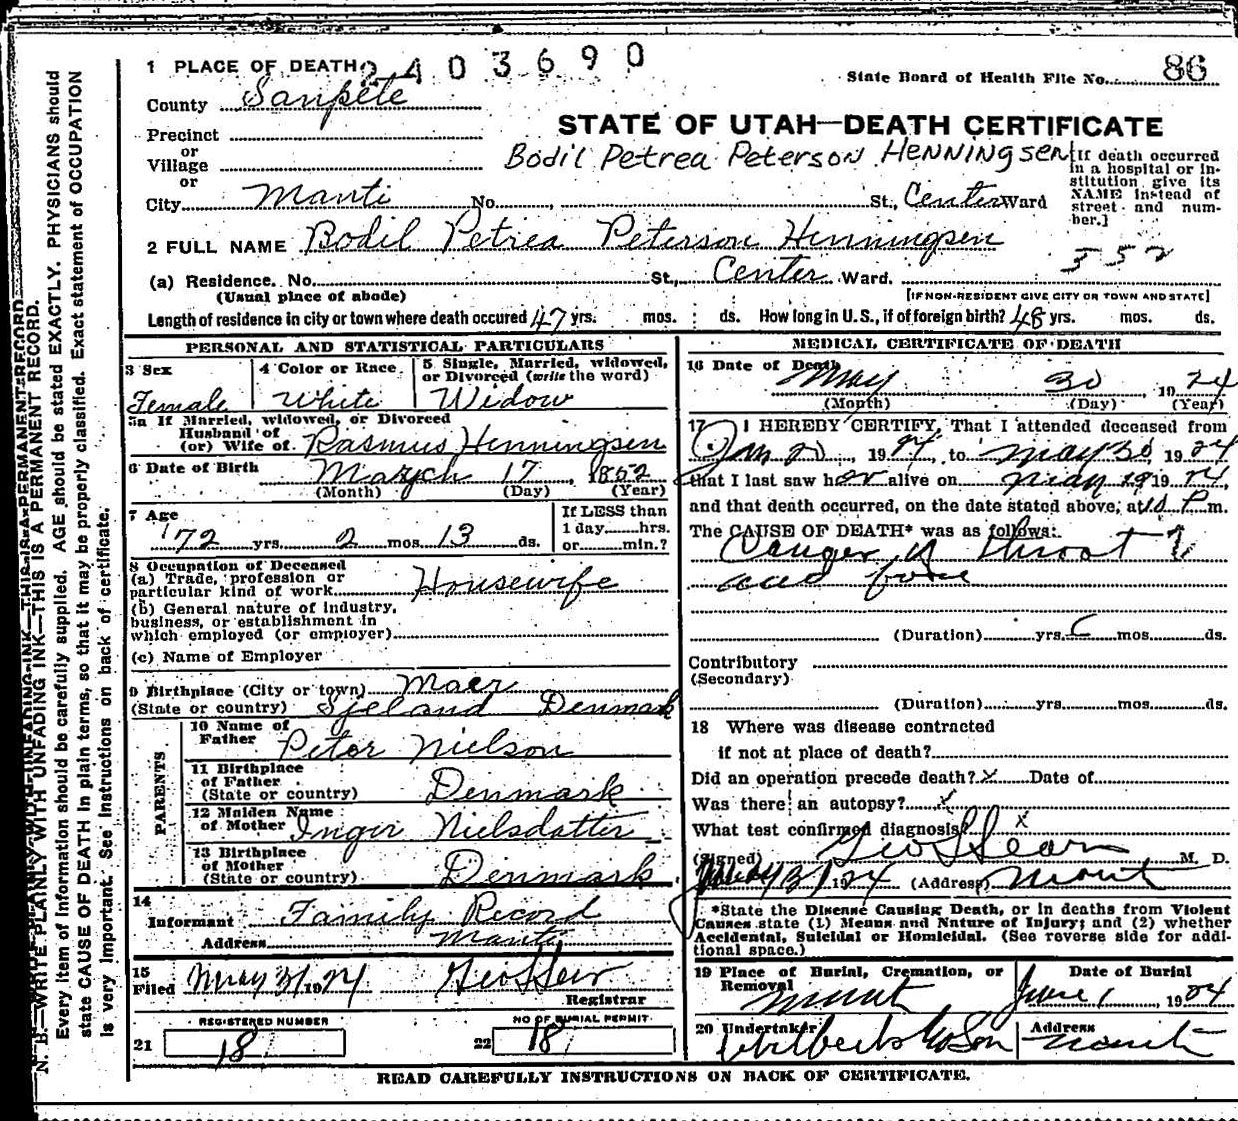 1 PLACE OF DEATH 2403690
State Board of Health File No. 86
County Sanpete
STATE OF UTAH—DEATH CERTIFICATE
Precinct
or
Village
Bodil Petrea Peterson Henningsen
[If death occurred in a hospital or institution give its NAME instead of street and number.]
or
City Manti No. , St., Center Ward
2 FULL NAME Bodil Petrea Peterson Henningsen
552
(a) Residence. No. St., Center Ward.
(Usual place of abode) [IF NON-RESIDENT GIVE CITY OR TOWN AND STATE]
Length of residence in city or town where death occured 47 yrs. mos. ds. How long in U.S., if of foreign birth? 48 yrs. mos. ds.
PERSONAL AND STATISTICAL PARTICULARS
3 Sex
Female
4 Color or Race
White
5 Single, Married, widowed, or Divorced (write the word)
Widow
5a If Married, widowed, or Divorced
Husband of
(or) Wife of Rasmus Henningsen
6 Date of Birth March 17, 1852
(Month) (Day) (Year)
7 Age
72 yrs. 2 mos. 13 ds.
If LESS than
1 day hrs.
or min.?
8 Occupation of Deceased
(a) Trade, profession or
particular kind of work Housewife
(b) General nature of industry,
business, or establishment in
which employed (or employer)
(c) Name of Employer
9 Birthplace (City or town) Maer
(State or country) Sjeland Denmark
PARENTS
10 Name of
Father Peter Nielson
11 Birthplace
of Father
(State or country) Denmark
12 Maiden Name
of Mother Inger Nielsdatter
13 Birthplace
of Mother
(State or country) Denmark
14
Informant Family Record
Address Manti
15
Filed May 31 1924
Registrar
REGISTERED NUMBER
21 18
NO OF BURIAL PERMIT
22 18
MEDICAL CERTIFICATE OF DEATH
16 Date of Death
May 30 1924
(Month) (Day) (Year)
17 I HEREBY CERTIFY, That I attended deceased from
Jan 1924, to May 30 1924
that I last saw her alive on May 19 1924,
and that death occurred, on the date stated above, at 10 P m.
The CAUSE OF DEATH* was as follows:
Cancer of throat
and face
(Duration) yrs. 6 mos. ds.
Contributory
(Secondary)
(Duration) yrs. mos. ds.
18 Where was disease contracted
if not at place of death?
Did an operation precede death? x Date of
Was there an autopsy? x
What test confirmed diagnosis? x
(Signed) M. D.
May 31 1924 (Address) Manti
*State the Disease Causing Death, or in deaths from Violent
Causes state (1) Means and Nature of Injury; and (2) whether
Accidental, Suicidal or Homicidal. (See reverse side for addi-
tional space.)
19 Place of Burial, Cremation, or
Removal
Manti
Date of Burial
June 1, 1924
20 Undertaker
Address
Manti
READ CAREFULLY INSTRUCTIONS ON BACK OF CERTIFICATE.
N. B.—WRITE PLAINLY WITH UNFADING INK—THIS IS A PERMANENT RECORD.
Every item of information should be carefully supplied. AGE should be stated EXACTLY. PHYSICIANS should
state CAUSE OF DEATH in plain terms, so that it may be properly classified. Exact statement of OCCUPATION
is very important. See instructions on back of certificate.